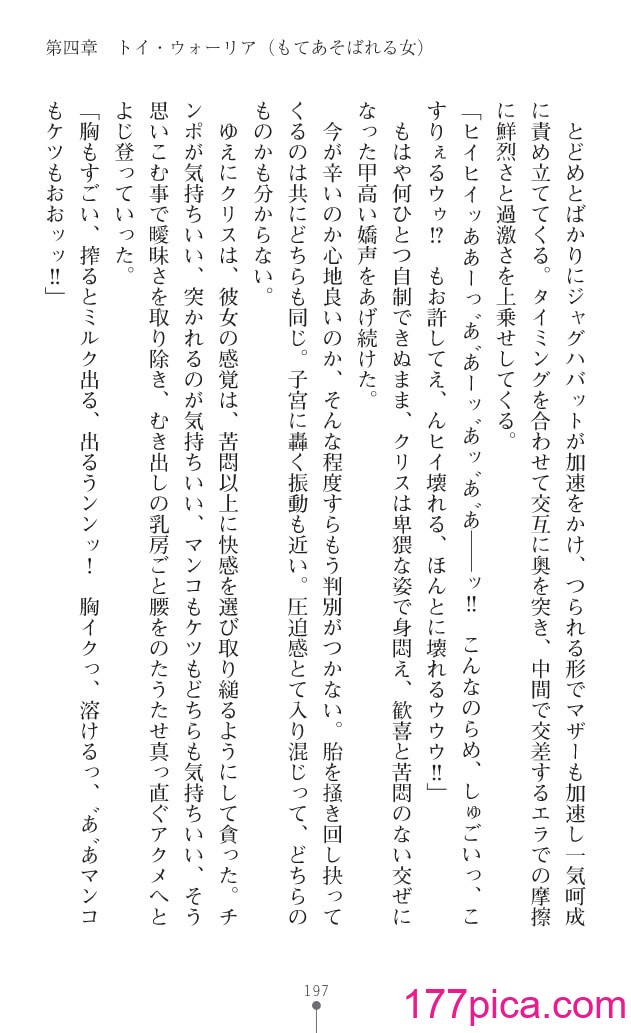 第四章　トイ・ウォーリア（もてあそばれる女）
　とどめとばかりにジャグハバットが加速をかけ、つられる形でマザーも加速し一気呵成
に責め立ててくる。タイミングを合わせて交互に奥を突き、中間で交差するエラでの摩擦
に鮮烈さと過激さを上乗せしてくる。
「ヒイヒイッああーっ、あ゛、あ゛ーッ、あ゛ッ、あ゛、あ゛――ッ!!　こんなのらめ、しゅごいっ、こ
すりぇるウゥ!?　もお許してえ、んヒイ壊れる、ほんとに壊れるウウウ!!」
　もはや何ひとつ自制できぬまま、クリスは卑猥な姿で身悶え、歓喜と苦悶のない交ぜに
なった甲高い嬌声をあげ続けた。
　今が辛いのか心地良いのか、そんな程度すらもう判別がつかない。胎を掻き回し抉って
くるのは共にどちらも同じ。子宮に轟く振動も近い。圧迫感とて入り混じって、どちらの
ものかも分からない。
　ゆえにクリスは、彼女の感覚は、苦悶以上に快感を選び取り縋るようにして貪った。チ
ンポが気持ちいい、突かれるのが気持ちいい、マンコもケツもどちらも気持ちいい、そう
思いこむ事で曖昧さを取り除き、むき出しの乳房ごと腰をのたうたせ真っ直ぐアクメへと
よじ登っていった。
「胸もすごい、搾るとミルク出る、出るうンンッ！　胸イクっ、溶けるっ、あ゛、あ゛マンコ
もケツもおおッッ!!」
197
177pica.com